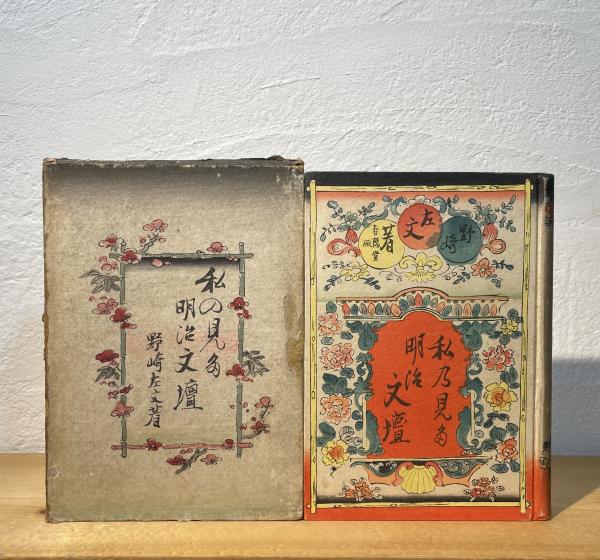 私の見た
明治文壇
野崎左文著
野崎
左文
著
春陽堂版
私乃見た
明治
文壇